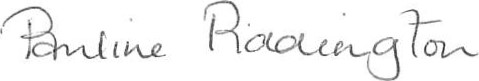 Pauline Riddington